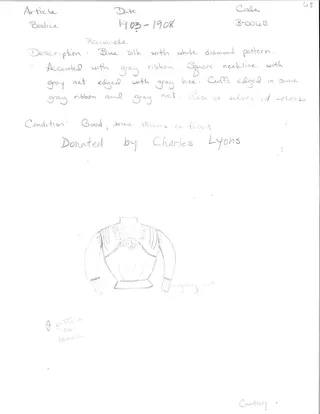 62
Article Date Code
Bodice 1903-1908 B-0048
Reconside
Description: Blue silk with white diamond pattern.
Accented with gray ribbon. Square neckline with
gray net edged with gray lace. Cuffs edged in same
gray ribbon and gray net.
Condition: Good, some stains on lining
Donated by Charles Lyons
gray net
pattern
on